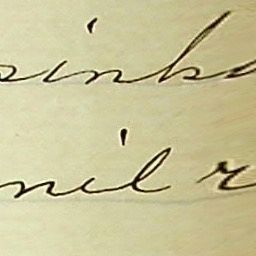 sinks
nil r